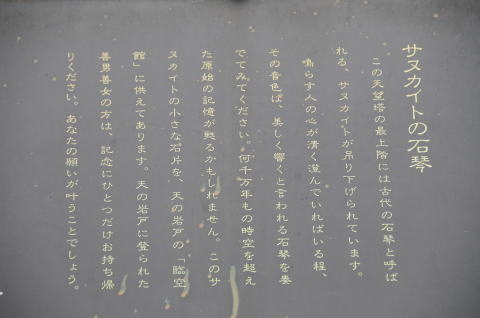 サヌカイトの石琴
この天望塔の最上階には古代の石琴と呼ば
れる、サヌカイトが吊り下げられています。
鳴らす人の心が清く澄んでいればいる程、
その音色は、美しく響くと言われる石琴を奏
でてみてください。何千万年もの時空を超え
た原始の記憶が甦るかもしれません。このサ
ヌカイトの小さな石片を、天の岩戸の「臨空
館」に供えてあります。天の岩戸に登られた
善男善女の方は、記念にひとつだけお持ち帰
りください。あなたの願いが叶うことでしょう。